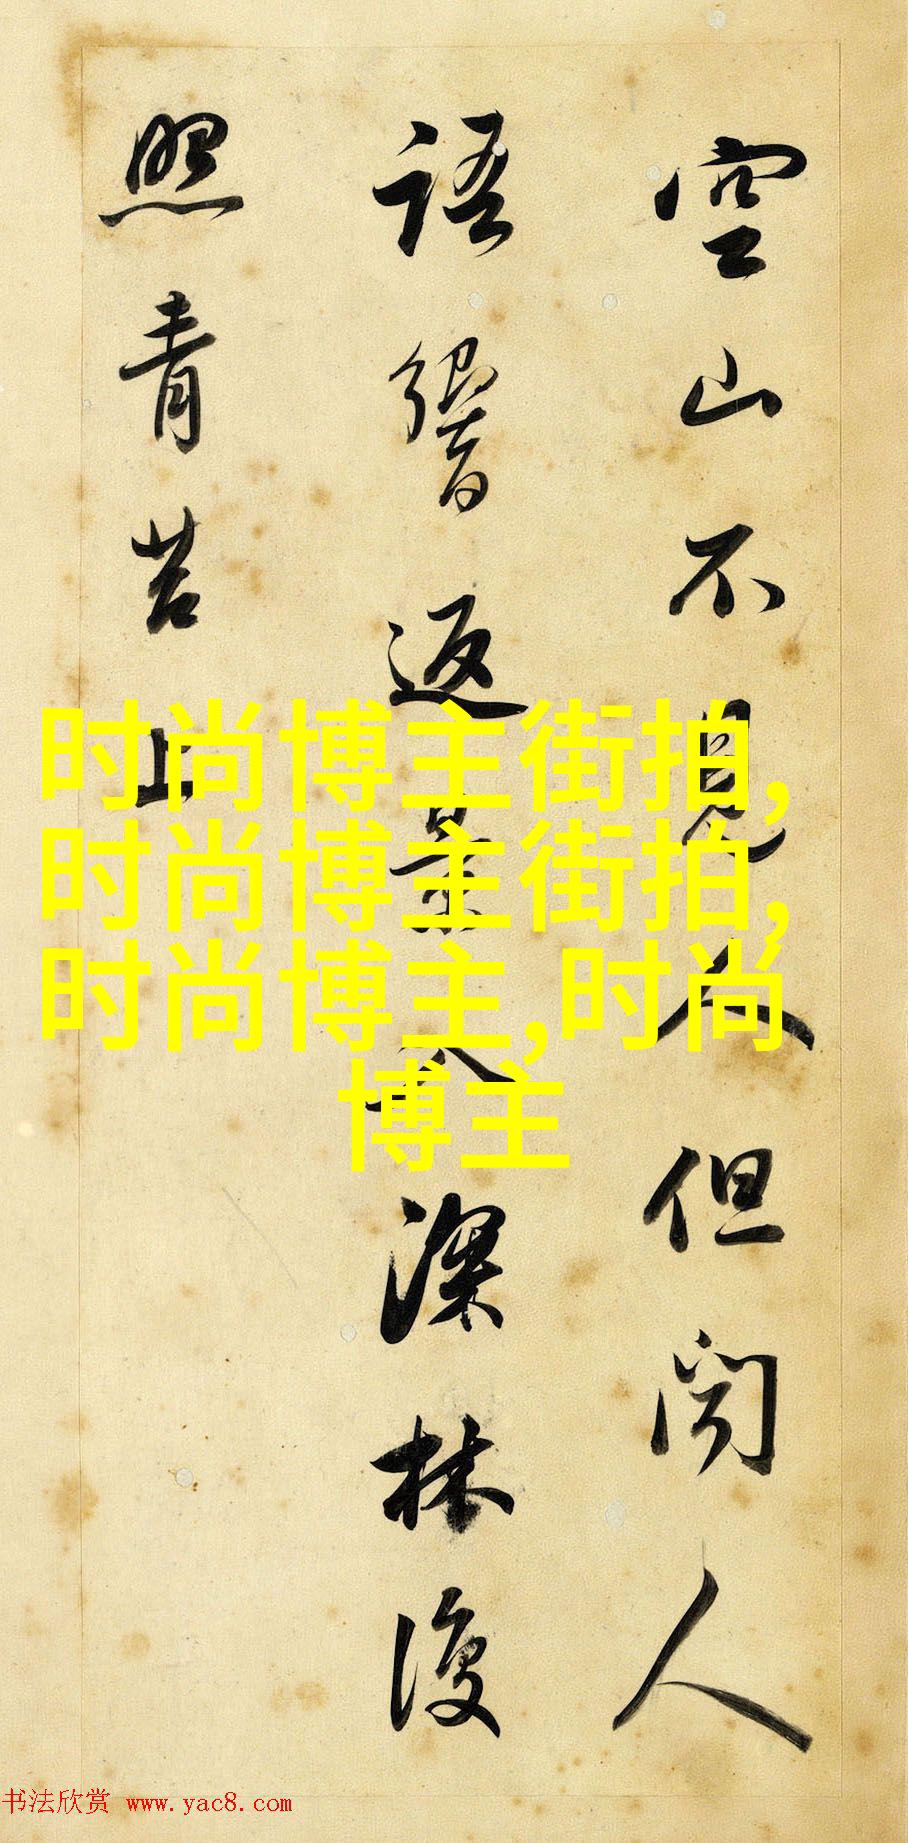 空山不見人但聞人
語響返景入深林復
照青苔上
时尚博主街拍,
时尚博主街拍,
时尚博主,时尚
博主
书法欣赏 www.yac8.com